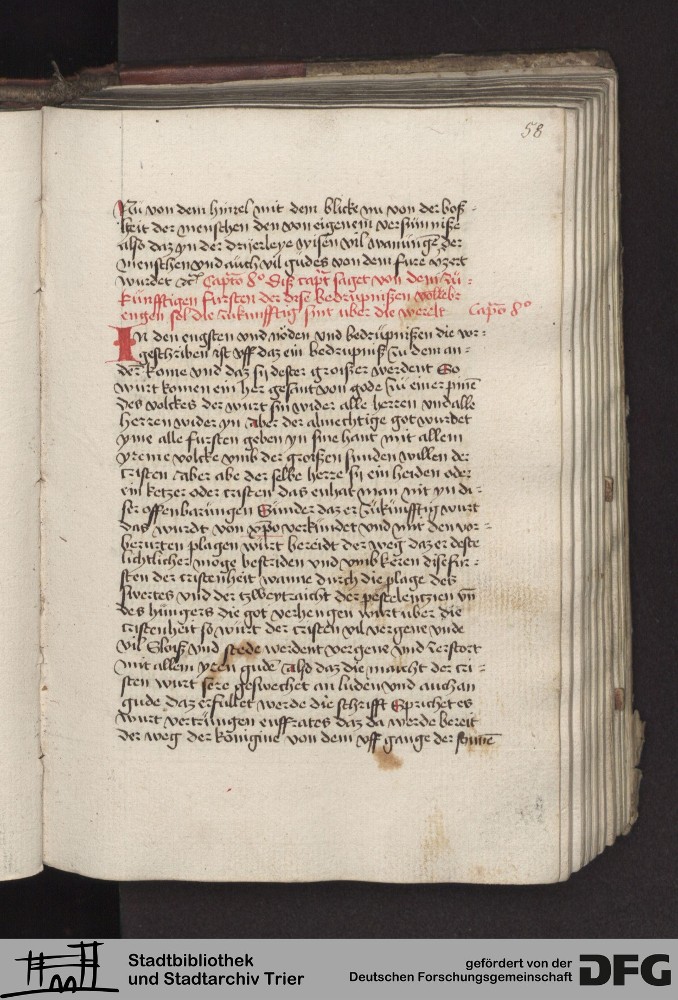 58
Nū von dem hymel mit dem blicke nū von der boß-
heit der menschen den von eigenem versümniße
also daz yn der dryerleye wisen vil der
menschen vnd auch vil gudes von dem fure v̄zert
wurdet ꝛc̄ Capto 8º Diß capt̄ saget von dem zü-
künfftigen fursten der dese bedrüpnißen vollebr
engen sol die zükunfftig sint uber die werelt Capto 8º
In den engsten vnd nöden vnd bedrüpnißen die vor-
geschriben ist vff daz ein bedrüpniß zu dem an-
der kome vnd daz sij dester groißer werdent So
wurt komen ein her gesant von gode zü einer pinē
des volckes der wurt sin wider alle herren vnd alle
herren wider yn aber der almechtige got wurdet
yme alle fursten geben yn sine hant mit allem
yreme volcke vmb der großen sunden willen der
cristen aber abe der selbe herre sij ein heiden oder
ein ketzer oder cristen das enhat man nit yn di-
ser offenbarüngen Sünder daz er zükünfftig wurt
das wurdt von xp̄o verkündet vnd mit den vor-
berurten plagen würt bereidt der weg daz er deste
lichtlicher möge bestriden vnd vmb keren dise für-
sten der cristenheit wanne durch die plage des
swertes vnd der tzweytraicht der pestelentzien vn̄
des hüngers die got verhengen wurt uber die
cristenheit so wurt der cristen vil vergene vnde
vil Sloiß vnd stede werdent vergene vnd zerstort
mit allem yren gude also daz die maicht der cri-
sten wurt sere geswechet an luden vnd auch an
gude daz erfüllet werde die schrifft Sprichet es
wurt vertrüngen euffrates daz da werde bereit
der weg der königine von dem vff gange der sonnē
Stadtbibliothek
und Stadtarchiv Trier
gefördert von der
Deutschen Forschungsgemeinschaft
DFG